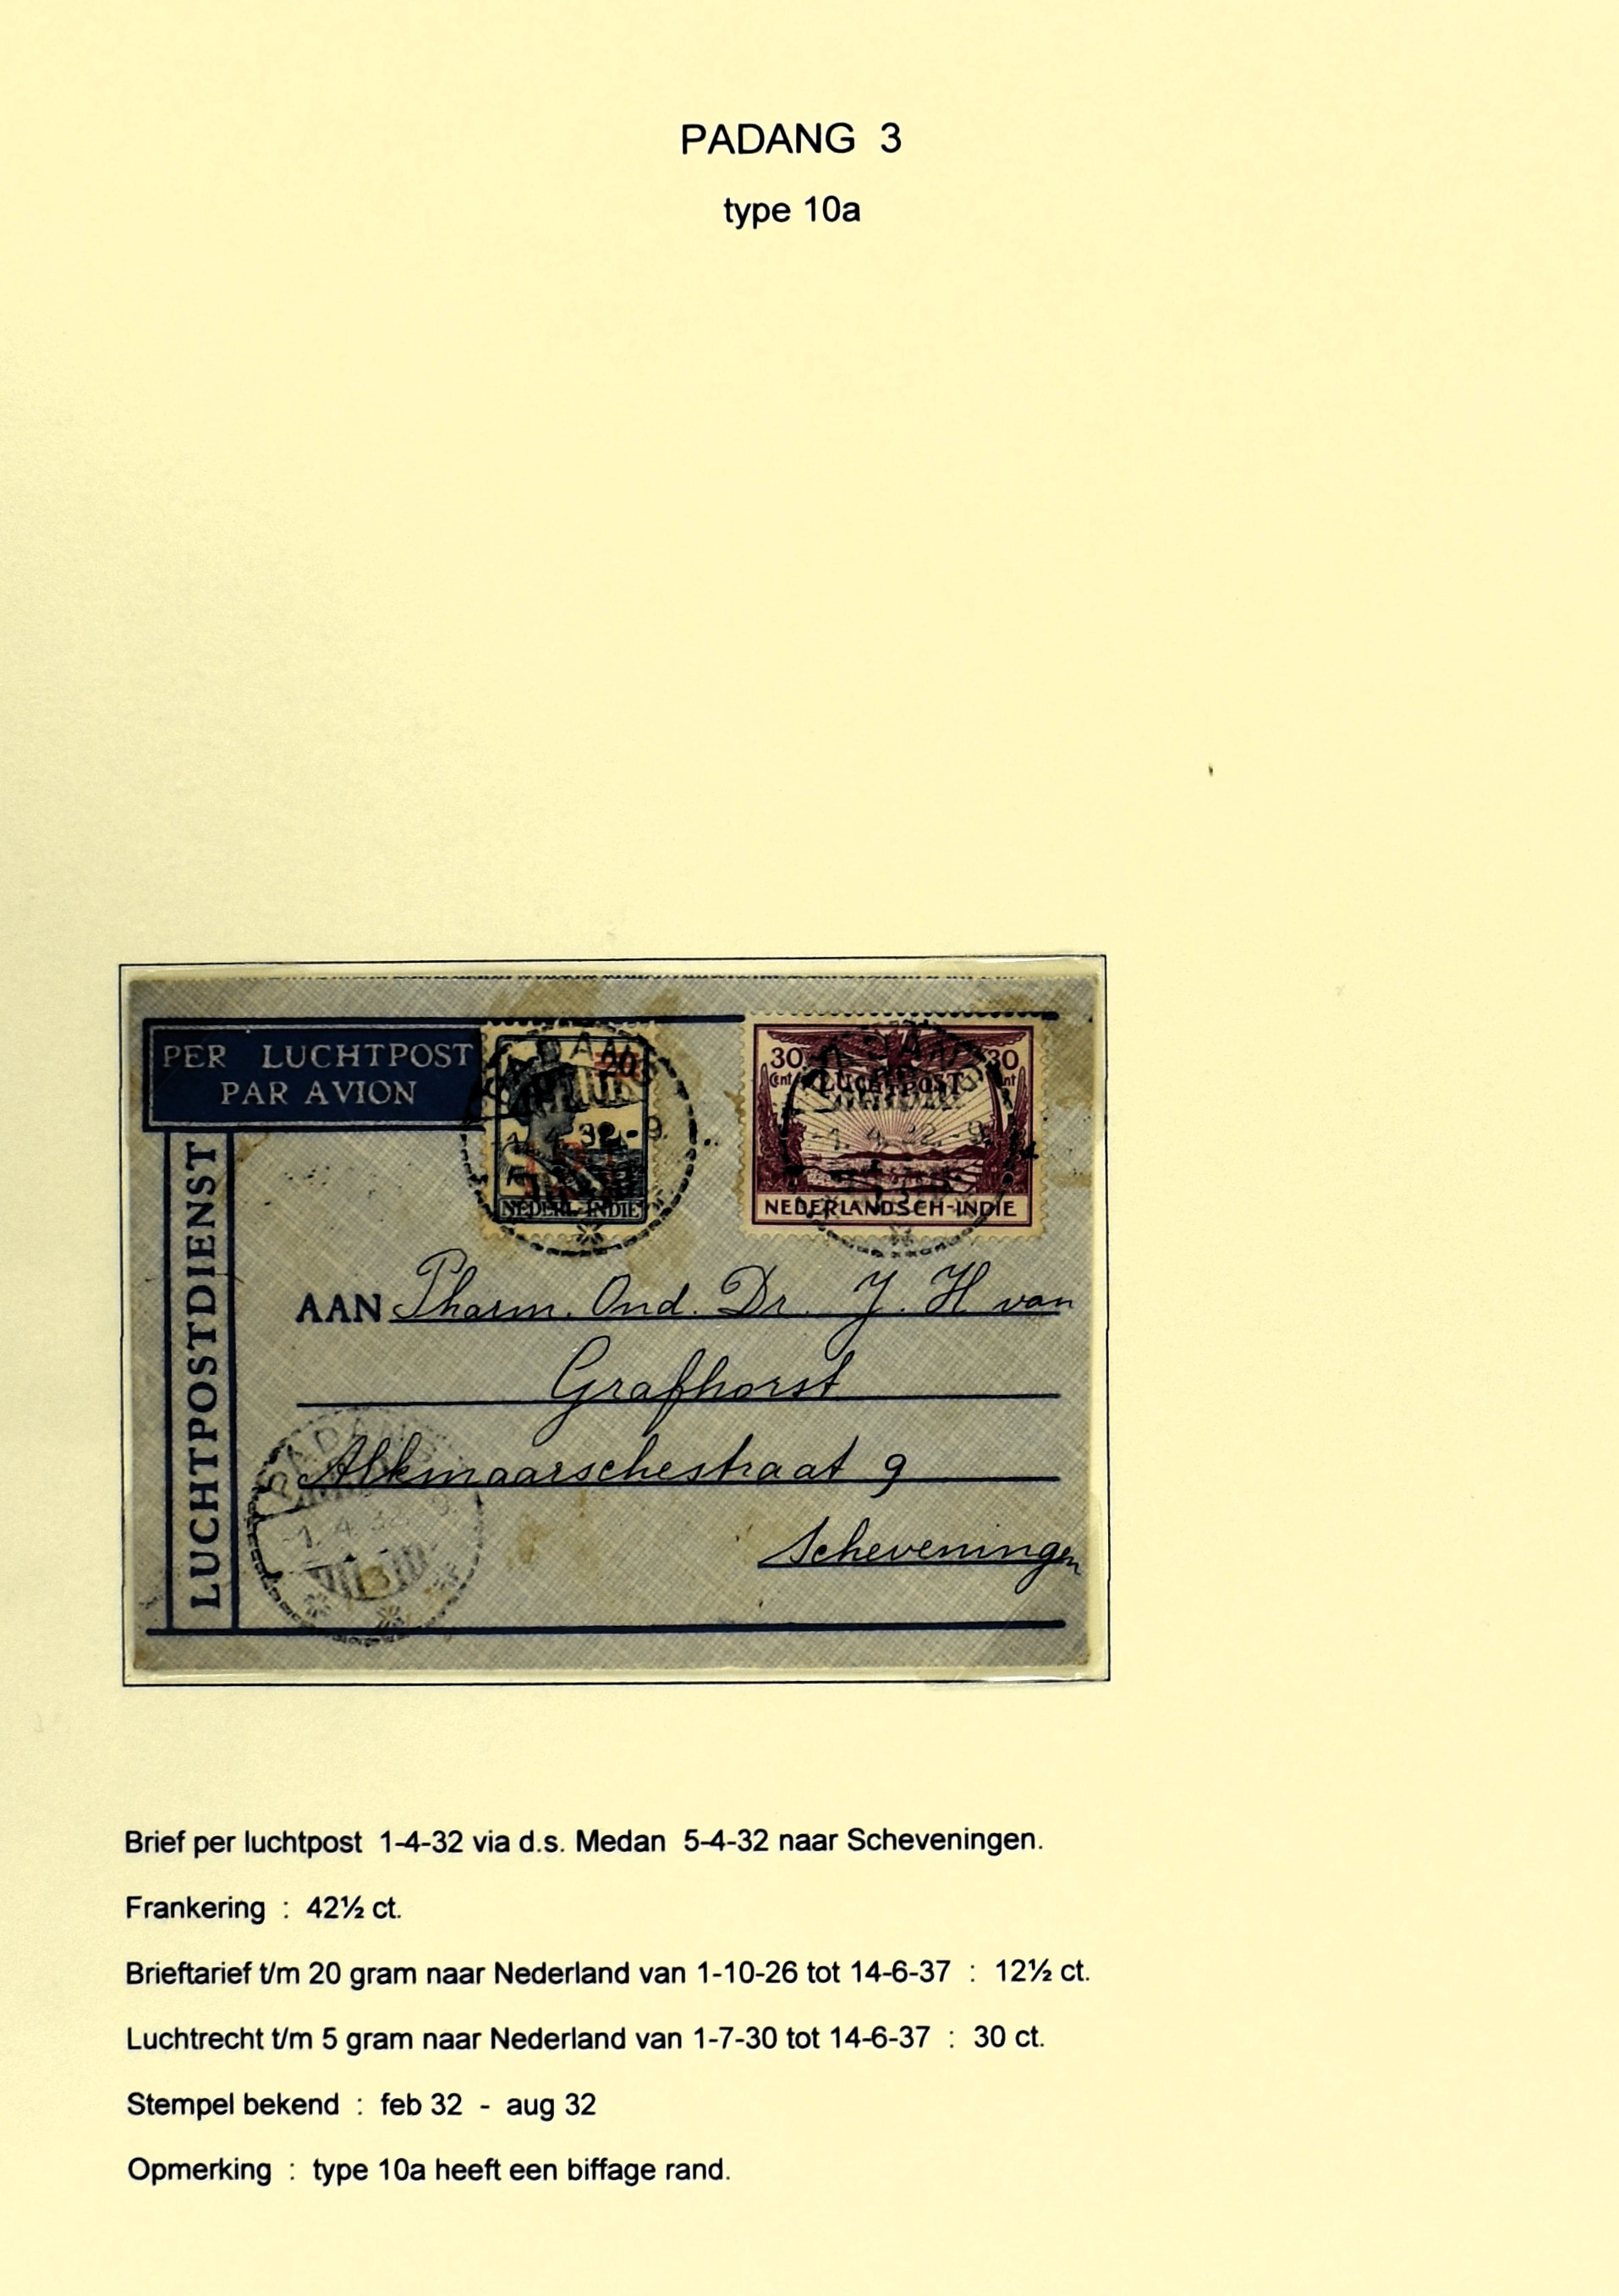 PADANG 3
type 10a
PER LUCHTPOST
PAR AVION
LUCHTPOSTDIENST
PADANG
20
-1.4.32.-9.
NEDERL-INDIE
30 30
Cent Cent
LUCHTPOST
-1.4.32.-9.
NEDERLANDSCH-INDIE
AAN Pharm. Ond. Dr. J. H van
Grafhorst
Alkmaarschestraat 9
Scheveningen
PADANG
-1.4.32.-9.
3
Brief per luchtpost 1-4-32 via d.s. Medan 5-4-32 naar Scheveningen.
Frankering : 42½ ct.
Brieftarief t/m 20 gram naar Nederland van 1-10-26 tot 14-6-37 : 12½ ct.
Luchtrecht t/m 5 gram naar Nederland van 1-7-30 tot 14-6-37 : 30 ct.
Stempel bekend : feb 32 - aug 32
Opmerking : type 10a heeft een biffage rand.